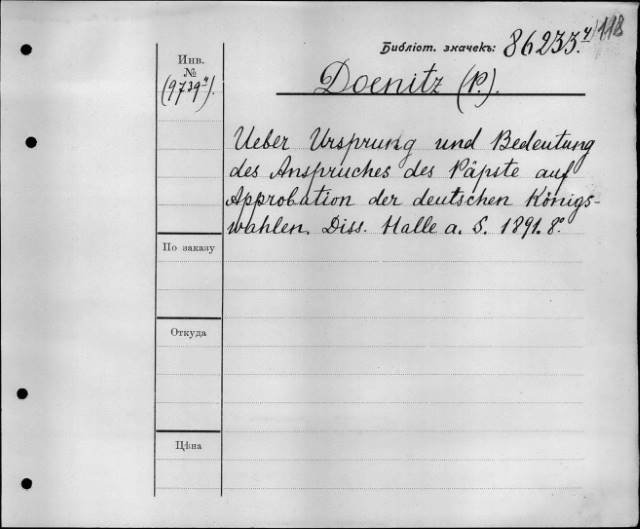 Библіот. значекъ: 86233.⁴/118
Инв.
№
(9739ᵃ).
Doenitz (P.).
Ueber Ursprung und Bedeutung
des Anspruches des Päpste auf
Approbation der deutschen Königs-
wahlen. Diss. Halle a. S. 1891. 8º.
По заказу
Откуда
Цѣна